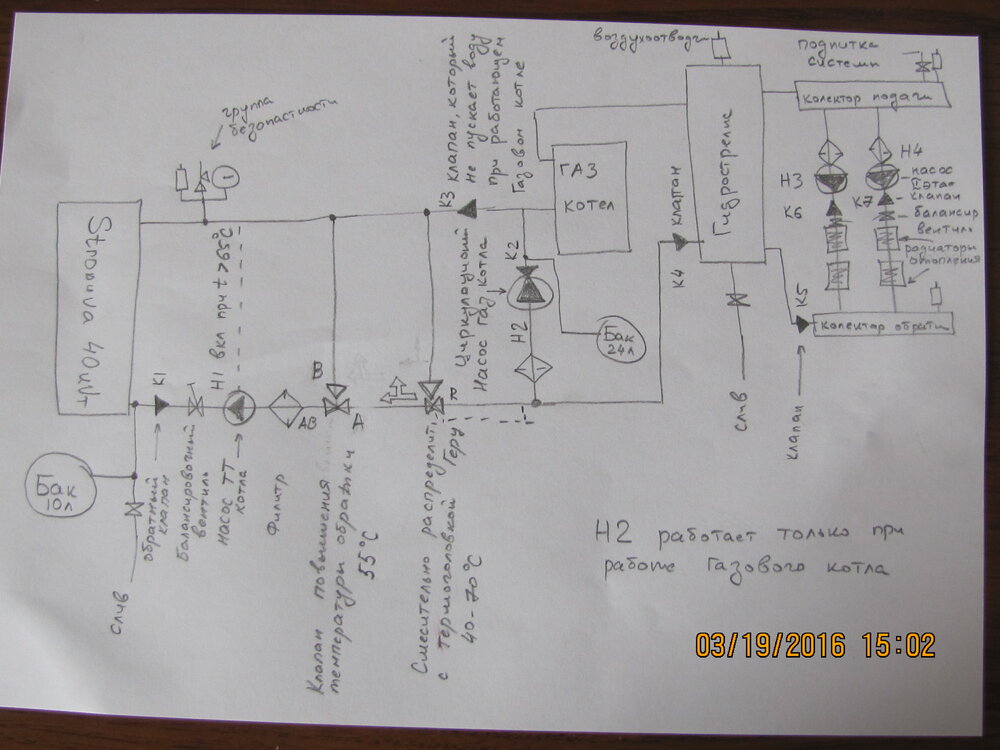 Stropuva 40 кvт
группа
безопастности
К3 клапан, который
не пускает воду
при работающем
Газовом котле
воздухоотводч
подпитка
системи
колектор подачи
ГАЗ
котел
Гидрострелка
К4 клапан
Н3
К6
Н4
насос
К7
клапан
балансир
вентиль
радиаторы
отопления
К5
колектор обратки
клапан
слив
Н1 вкл при t>65°C
К1
В
АВ
А
Циркуляционный
Насос Газ котла
К2
Н2
Бак
24л
Бак
10л
слив
обратный
клапан
Балансировочный
вентиль
насос ТТ
котла
Филитр
Клапан повышения
температуры обратки
55°С
Смесительно распределит
с термоголовкой Герц
40-70°С
Н2 работает только при
работе Газового котла
03/19/2016 15:02